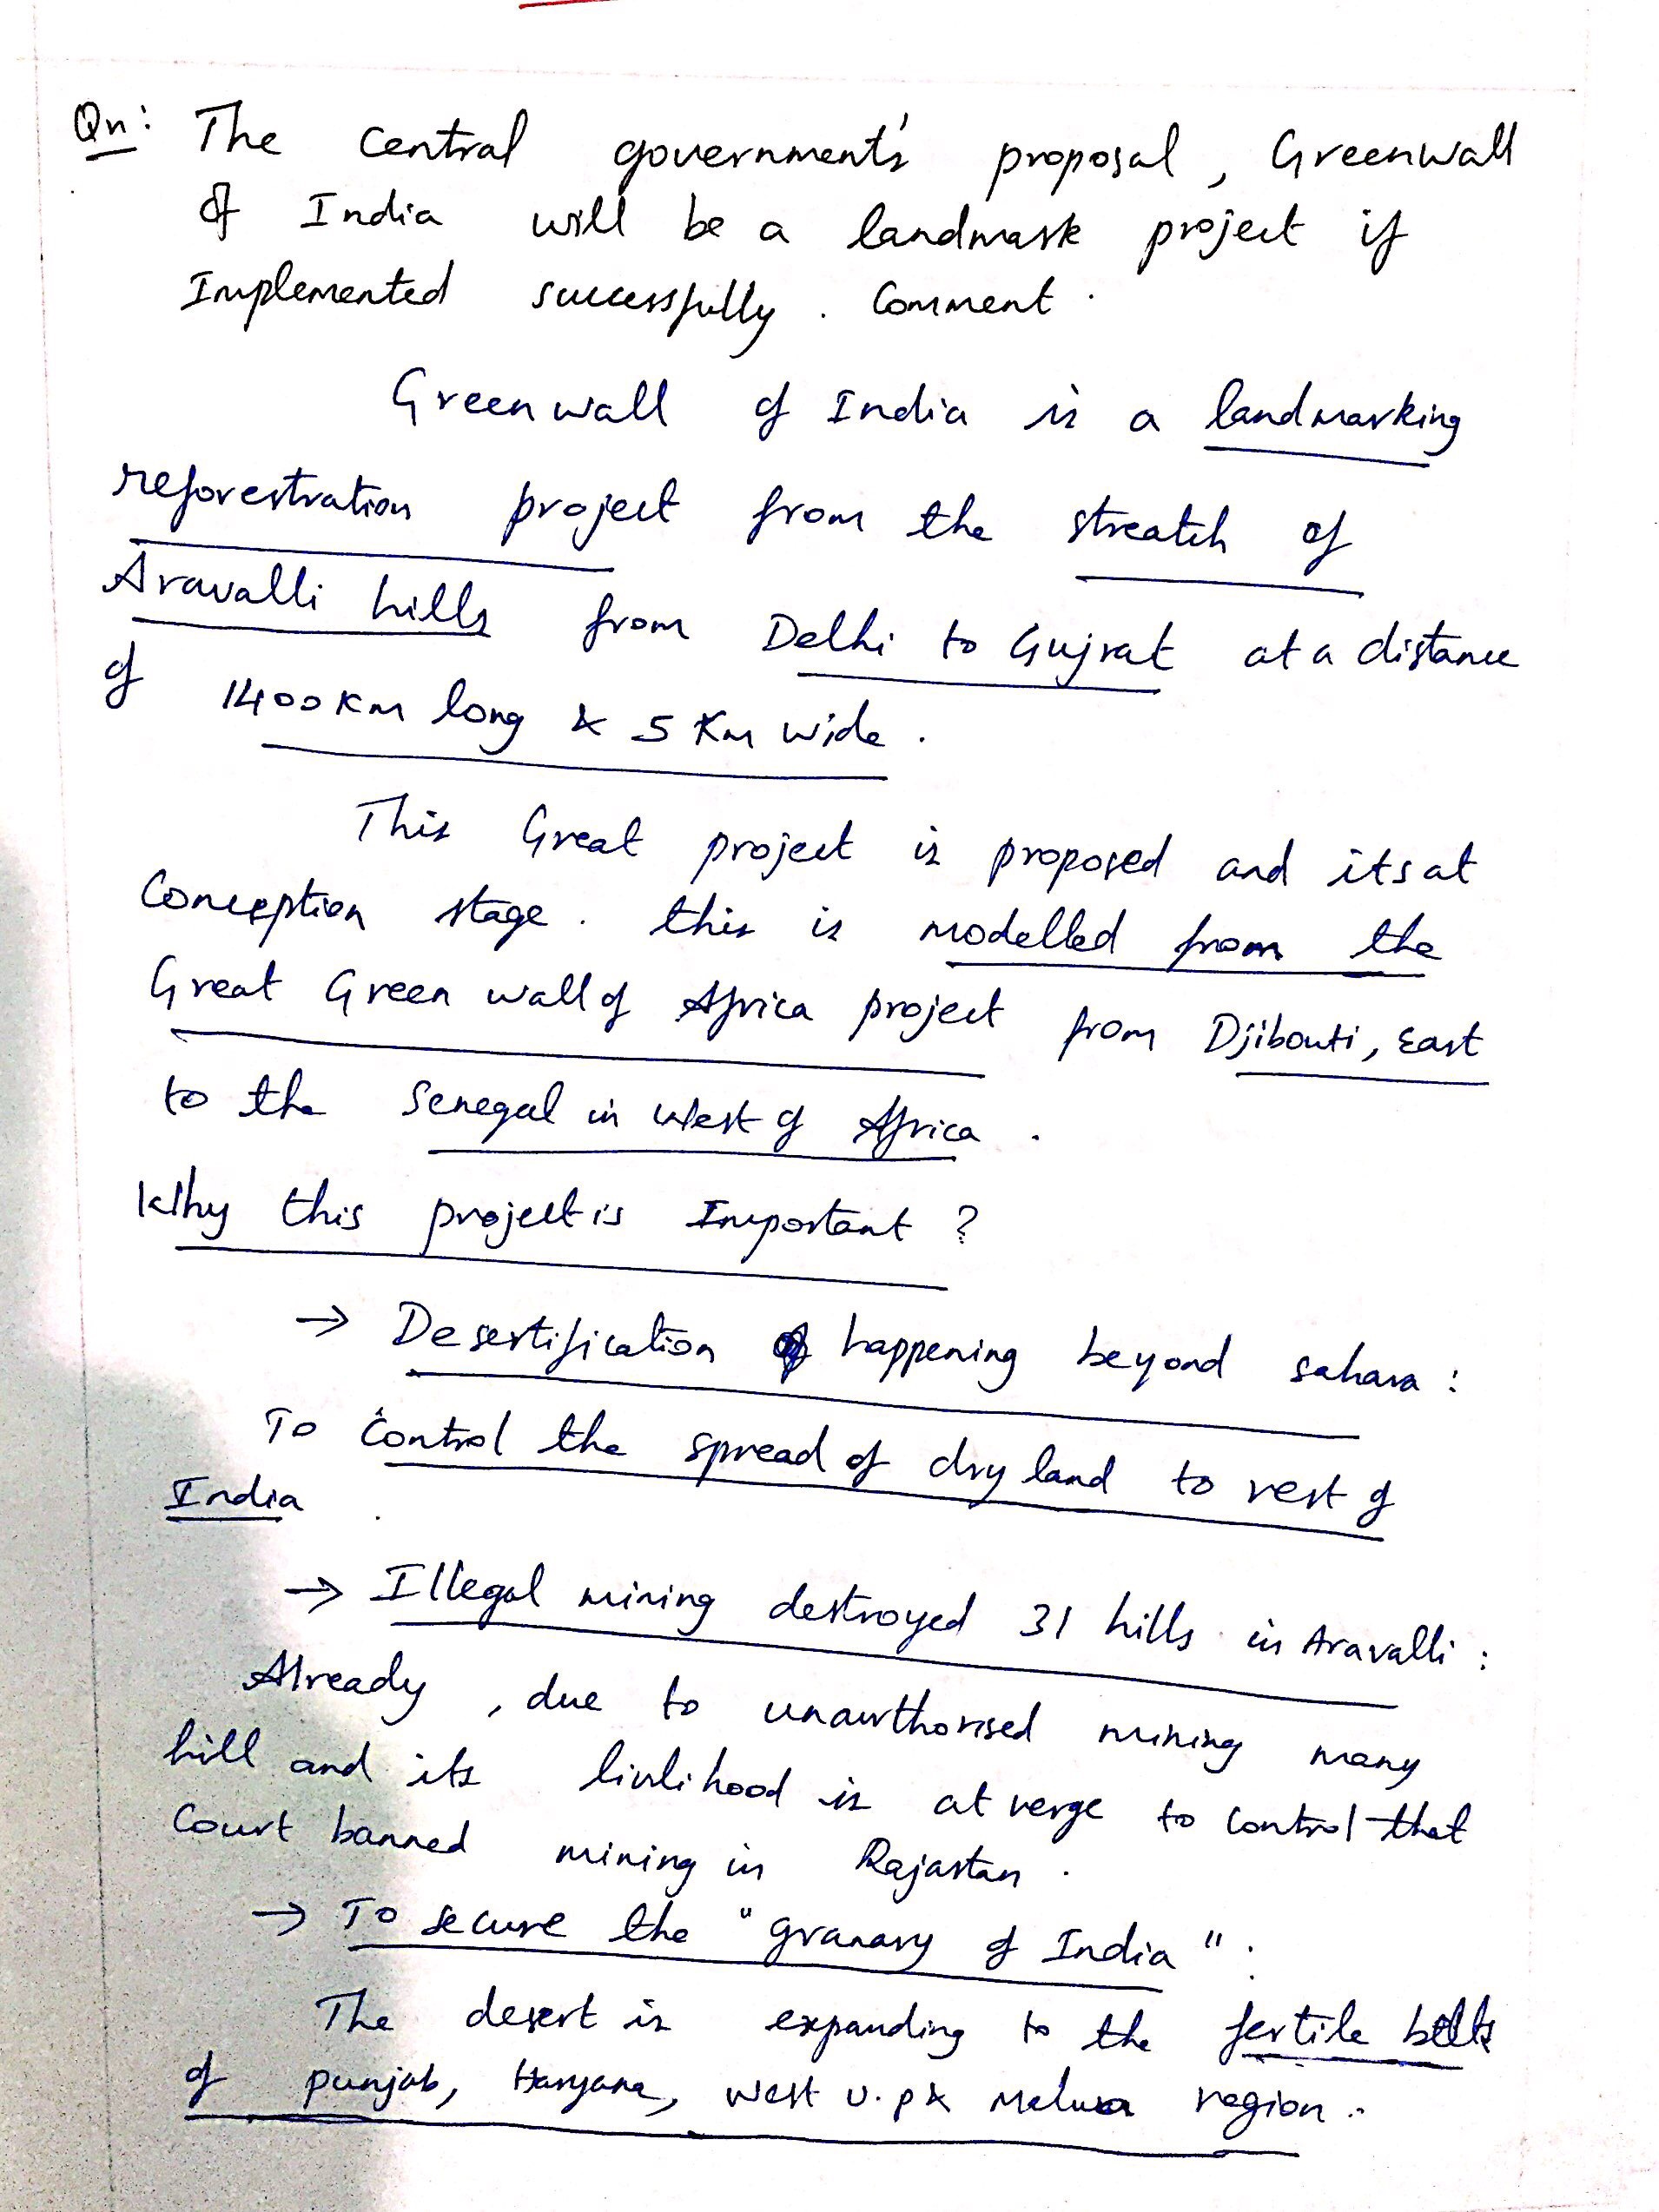 Qn: The central government's proposal, Greenwall
of India will be a landmark project if
Implemented successfully. Comment.
Greenwall of India is a landmarking
reforestration project from the streatch of
Aravalli hills from Delhi to Gujrat at a distance
of 1400 Km long & 5 Km wide.
This Great project is proposed and its at
Conception stage. this is modelled from the
Great Green wall of Africa project from Djibouti, East
to the Senegal in West of Africa.
Why this project is Important?
→ Desertification happening beyond sahara:
To control the spread of dry land to rest of
India.
→ Illegal mining destroyed 31 hills in Aravalli:
Already, due to unauthorised mining many
hill and its livlihood is at verge to control that
Court banned mining in Rajastan.
→ To secure the "granary of India":
The desert is expanding to the fertile belts
of punjab, Haryana, West U.P & Malwa region.